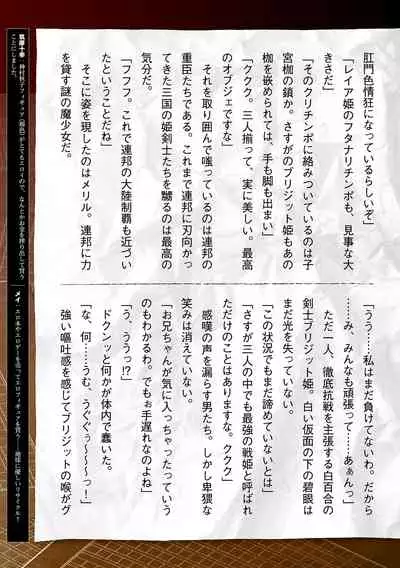 肛門色情狂になっているらしいぞ」
「レイア姫のフタナリチンポも、見事な大
きさだ」
「そのクリチンポに絡みついているのは子
宮枷の鎖か。さすがのブリジット姫もあの
枷を嵌められては、手も脚も出まい」
「ククク。三人揃って、実に美しい。最高
のオブジェですな」
　それを取り囲んで嗤っているのは連邦の
重臣たちである。これまで連邦に刃向かっ
てきた三国の姫剣士たちを嬲るのは最高の
気分だ。
「フフフ。これで連邦の大陸制覇も近づい
たということだね」
　そこに姿を現したのはメリル。連邦に力
を貸す謎の魔少女だ。
「うう……私はまだ負けてないわ。だから
……み、みんなも頑張って……あぁんっ」
　ただ一人、徹底抗戦を主張する白百合の
剣士ブリジット姫。白い仮面の下の碧眼は
まだ光を失っていない。
「この状況でもまだ諦めていないとは」
「さすが三人の中でも最強の戦姫と呼ばれ
ただけのことはありますな。ククク」
　感嘆の声を漏らす男たち。しかし卑猥な
笑みは消えていない。
「お兄ちゃんが気に入っちゃったっていう
のもわかるわ。でもぉ手遅れなのよね」
「う、ううっ!?」
　ドクンッと何かが体内で蠢いた。
「な、何……うむ、うぐぐぅ～～～っ！」
　強い嘔吐感を感じてブリジットの喉がグ
筑摩十幸
ことにしました。
メイ